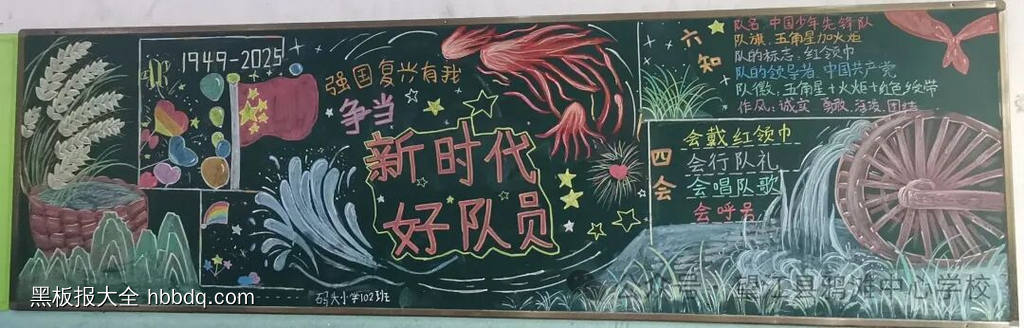 1949-2025
强国复兴有我
争当
新时代
好队员
六知
队名 中国少年先锋队
队旗:五角星加火炬
队的标志:红领巾
队的领导者 中国共产党
队徽:五角星+火炬+红色绶带
作风:诚实 勇敢 活泼 团结
四会
会戴红领巾
会行队礼
会唱队歌
会呼号
石大小学102班
黑板报大全 hbbdq.com
公众号
中心学校